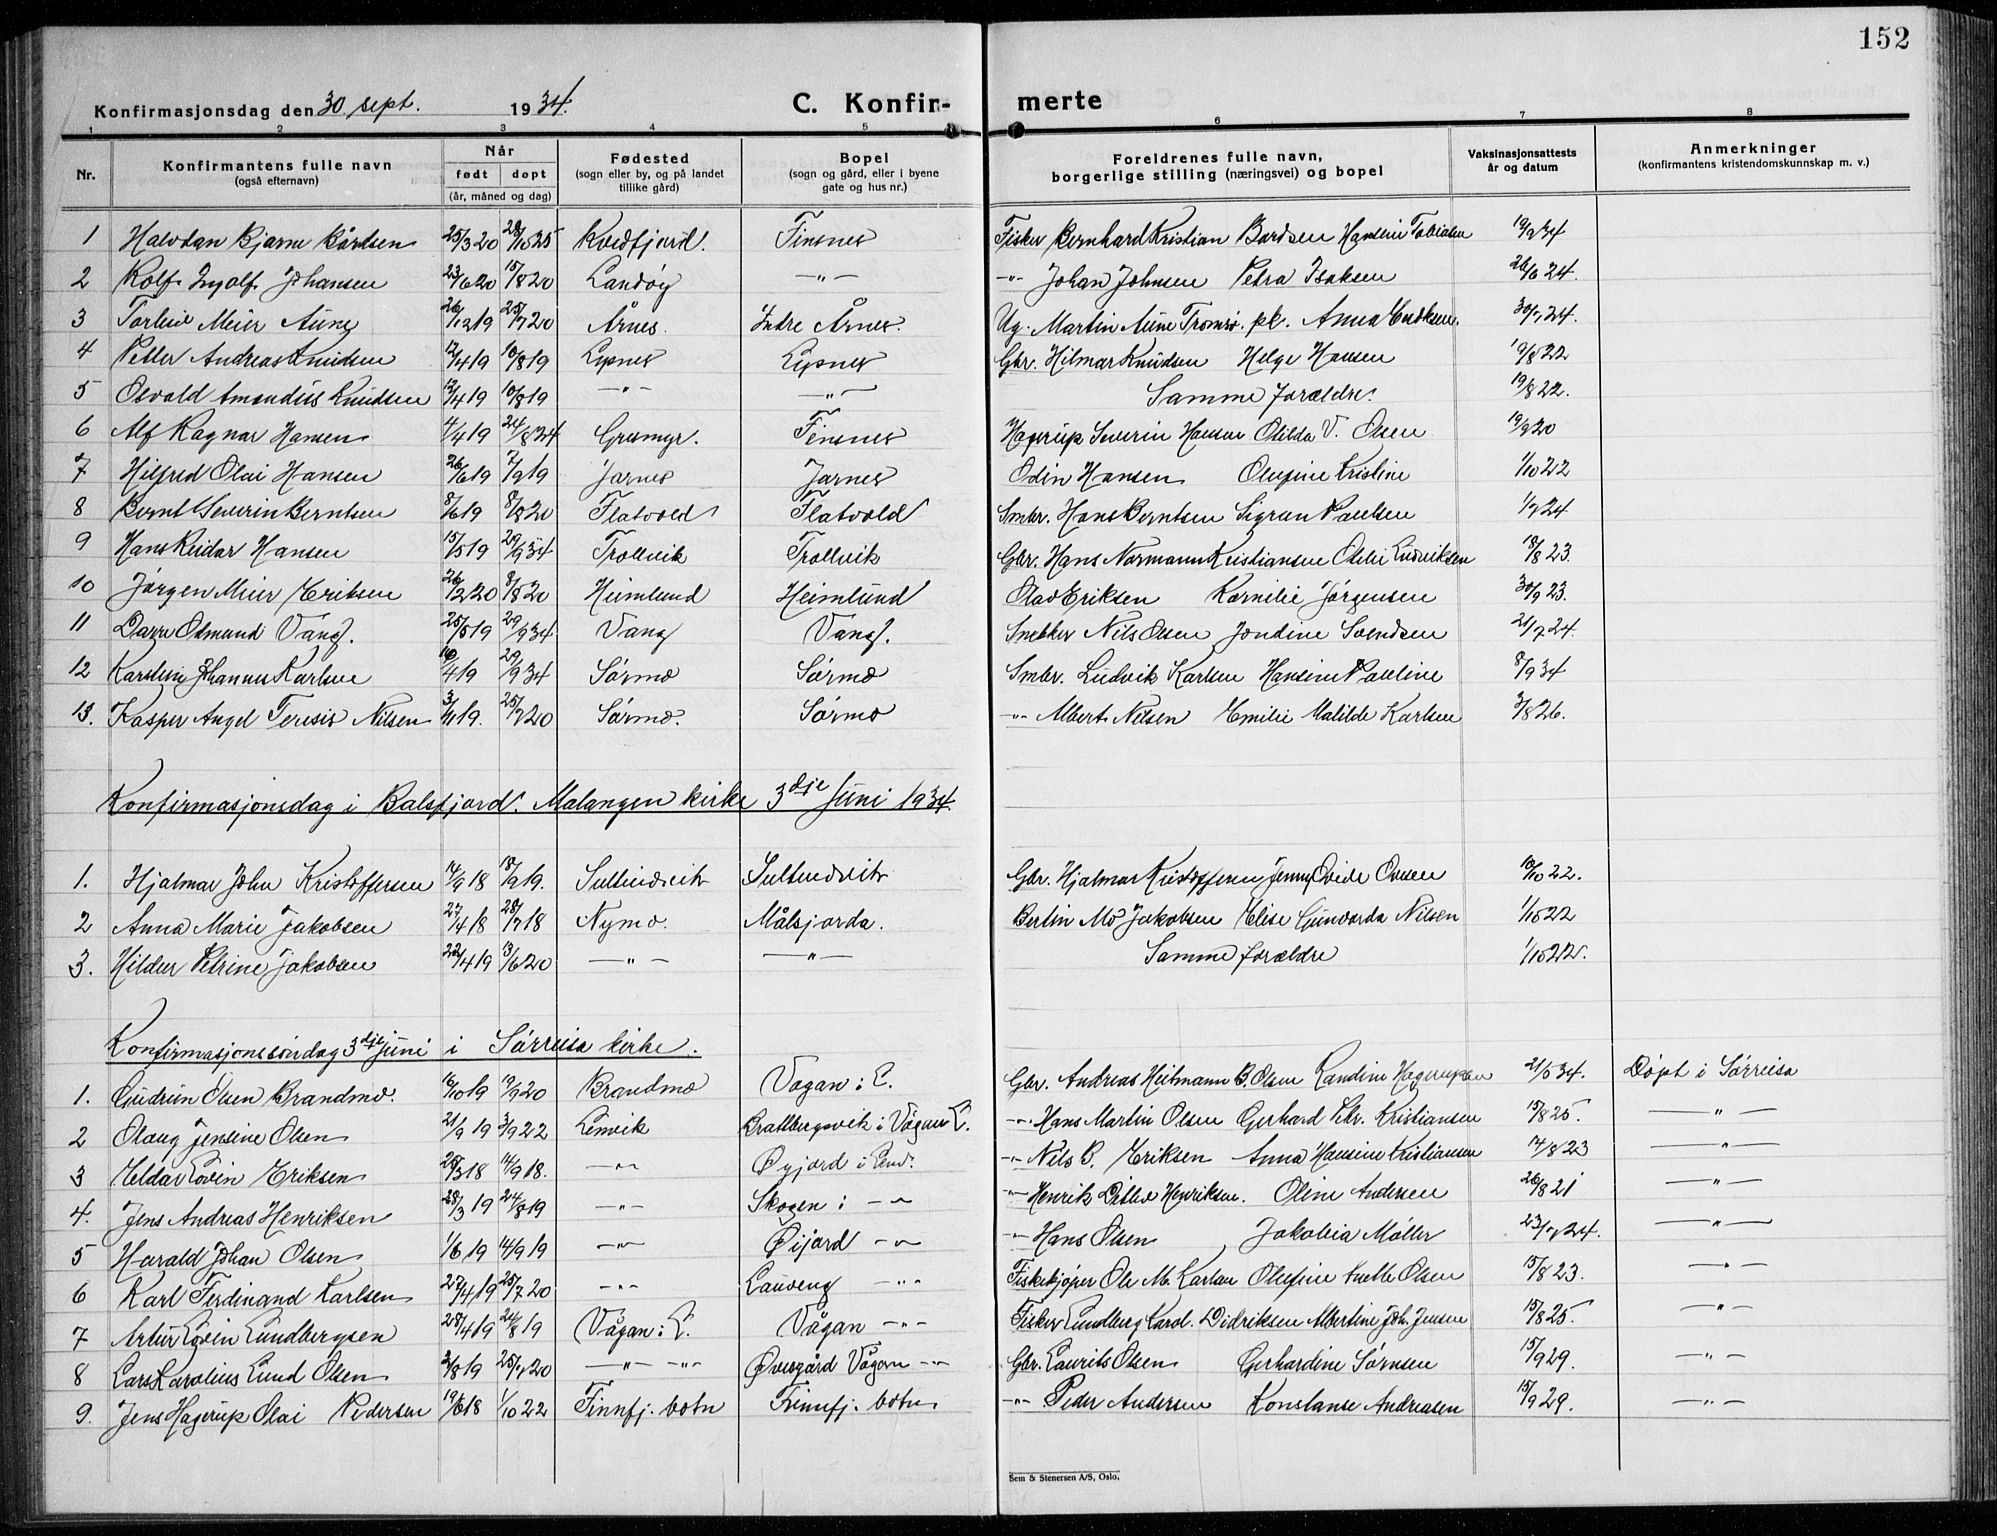 152
Konfirmasjonsdag den 30 sept. 1934. C. Konfir- merte
1 2 3 4 5 6 7 8
Nr. Konfirmantens fulle navn (også efternavn) Når født døpt (år, måned og dag) Fødested (sogn eller by, og på landet tillike gård) Bopel (sogn og gård, eller i byene gate og hus nr.) Foreldrenes fulle navn, borgerlige stilling (næringsvei) og bopel Vaksinasjonsattests år og datum Anmerkninger (konfirmantens kristendomskunnskap m. v.)
1 Halvdan Bjarne Bårdsen 25/3 20 28/10 25 Kvedfjord. Finsnes Fisker Bernhard Kristian Bardsen Hansine Tobiasen 19/9 34
2 Rolf Ingolf Johansen 23/6 20 15/8 20 Landøy -"- -"- Johan Johnsen Petra Isaksen 26/6 24.
3 Torleiv Meier Aune 26/12 19 25/7 20 Årnes. Indre Årnes. Ug. Martin Aune Tromsø. pl. Anna Eriksen. 30/7 24.
4 Petter Andreas Knudsen 12/4 19 10/8 19 Lysnes Lysnes Gbr. Hilmar Knudsen Helge Hansen 19/8 22
5 Osvald Amandus Knudsen 12/4 19 10/8 19 -"- -"- Samme forældre. 19/8 22.
6 Alf Ragnar Hansen 4/4 19 24/8 24 Grasmyr. Finsnes Hagerup Severin Hansen Otilda V. Olsen 19/9 20
7 Hilfred Olai Hansen 26/6 19 7/9 19 Jarnes Jarnes Odin Hansen Olufine Kristine 1/10 22
8 Bernt Severin Berntsen 8/6 19 8/8 20 Flatvold Flatvold Smbr. Hans Berntsen Sigrun Paulsen 1/9 24
9 Hans Reidar Hansen 15/5 19 29/9 34 Trollvik Trollvik Gbr. Hans Normann Kristiansen Ludviksen 18/8 23.
10 Jørgen Meier Eriksen 26/2 20 8/8 20 Heimlund Heimlund Olav Eriksen Kornilie Jørgensen 30/9 23.
11 Osmund Vang. 25/5 19 29/9 34 Vang Vang. Snekker Nils Olsen Jondine Svendsen 21/7 24.
12 Karstein Johannes Karlsen 16/4 19 29/9 34 Sørmo Sørmo Smbr. Ludvik Karlsen Hansine Pauline 8/9 34
13. Kasper Angel Teresis Nilsen 3/11 19. 25/7 20 Sørmo. Sørmo -"- Albert Nilsen Emilie Matilde Karlsen 3/8 26.
Konfirmasjonsdag i Balsfjord. Malangen kirke 3dje Juni 1934.
1. Hjalmar John Kristoffersen 14/9 18 18/9 19. Sultindvik Sultindvik Gbr. Hjalmar Kristoffersen Jenny Ovide Ovesen 10/10 22.
2 Anna Marie Jakobsen 27/4 18 28/7 18 Nymo. Målsjorda. Bertin Mo Jakobsen Elise Gunvarda Nilsen 1/10 22
3. Hildur Petrine Jakobsen 22/4 19 13/6 20 -"- -"- Samme forældre 1/10 22.
Konfirmasjonssøndag 3dje juni i Sørreisa kirke.
1. Gudrun Olsen Brandmo. 16/10 19 19/9 20 Brandmo Vågan i L. Gbr. Andreas Heitmann B. Olsen Randine Hagerupsen 21/5 34. Døpt i Sørreisa
2 Olaug Jensine Olsen 21/9 19 3/9 22 Lenvik Brattbergsvik i Vågan L. -"- Hans Martin Olsen Gerhard Kr. Kristiansen 15/8 25. -"-
3 Eldar Edvin Eriksen 25/3 18 14/9 18. -"- Øyjord i Lenv. -"- Nils B. Eriksen Anna Hansine Kristiansen 14/8 23 -"-
4. Jens Andreas Henriksen 28/3 19 24/8 19 -"- Skogen i -"- -"- Henrik Ditlev Henriksen. Oline Andersen 26/8 21 -"-
5 Harald Johan Olsen 1/6 19 14/9 19 -"- Øijord -"- -"- Hans Olsen Jakobia Møller 23/7 24. -"-
6 Karl Ferdinand Karlsen 27/4 19 25/7 20 -"- Lauveng -"- Fiskekjøper Ole M. Karlsen Olufine Anette Olsen 15/8 23. -"-
7 Artur Edvin Lundbergsen 28/4 19 24/8 19 Vågan i L. Vågan -"- Fisker Lundberg Karol. Didriksen Albertine Joh. Jensen 15/8 25. -"-
8 Lars Karolius Lund Olsen 3/8 19 25/7 20 -"- -"- Øvergård Vågan -"- Gbr. Laurits Olsen Gerhardine Sørensen 15/9 29. -"-
9. Jens Hagerup Olai Pedersen 19/6 18 1/10 22 Finnfj. botn Finnfj. botn -"- Peder Andersen Konstanse Andreasen 15/9 29. -"-
Sem & Stenersen A/S, Oslo.